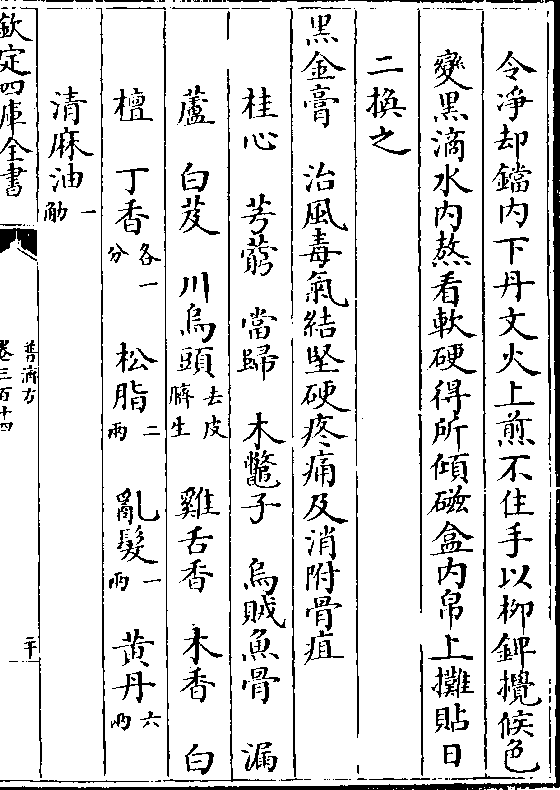 令凈却鐺内下丹文火上煎不住手以栁錍攪候色
變黑滴水内熬看軟硬得所傾磁盒内帛上攤貼日
二換之
黑金膏　治風毒氣結堅硬疼痛及消附骨疽
桂心　芎藭　當歸　木虌子　烏賊魚骨　漏
蘆　白芨　川烏頭去皮臍生　雞舌香　木香　白
檀　丁香各一分　松脂二兩　亂髮一兩　黄丹六兩
清麻油一觔
欽定四庫全書
普濟方
卷三百十四
二十